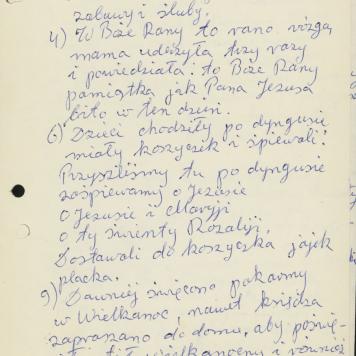 zabawy i śluby.
4) W Boże Rany to rano rózgą
mama uderzyła trzy razy
i powiedziała: to Boże Rany
pamiątka jak Pana Jezusa
bito w ten dzień.
6) Dzieci chodziły po dyngusie
miały koszyczek i śpiewali:
Przyszliśmy tu po dyngusie
zaśpiewamy o Jezusie
o Jezusie i Maryji
o ty świenty Rozaliji.
Dostawali do koszyczka jajek
placka.
9) Dawniej święcono pokarmy
w Wielkanoc, nawet księdza
zapraszano do domu, aby poświę-
wielkanocny i również